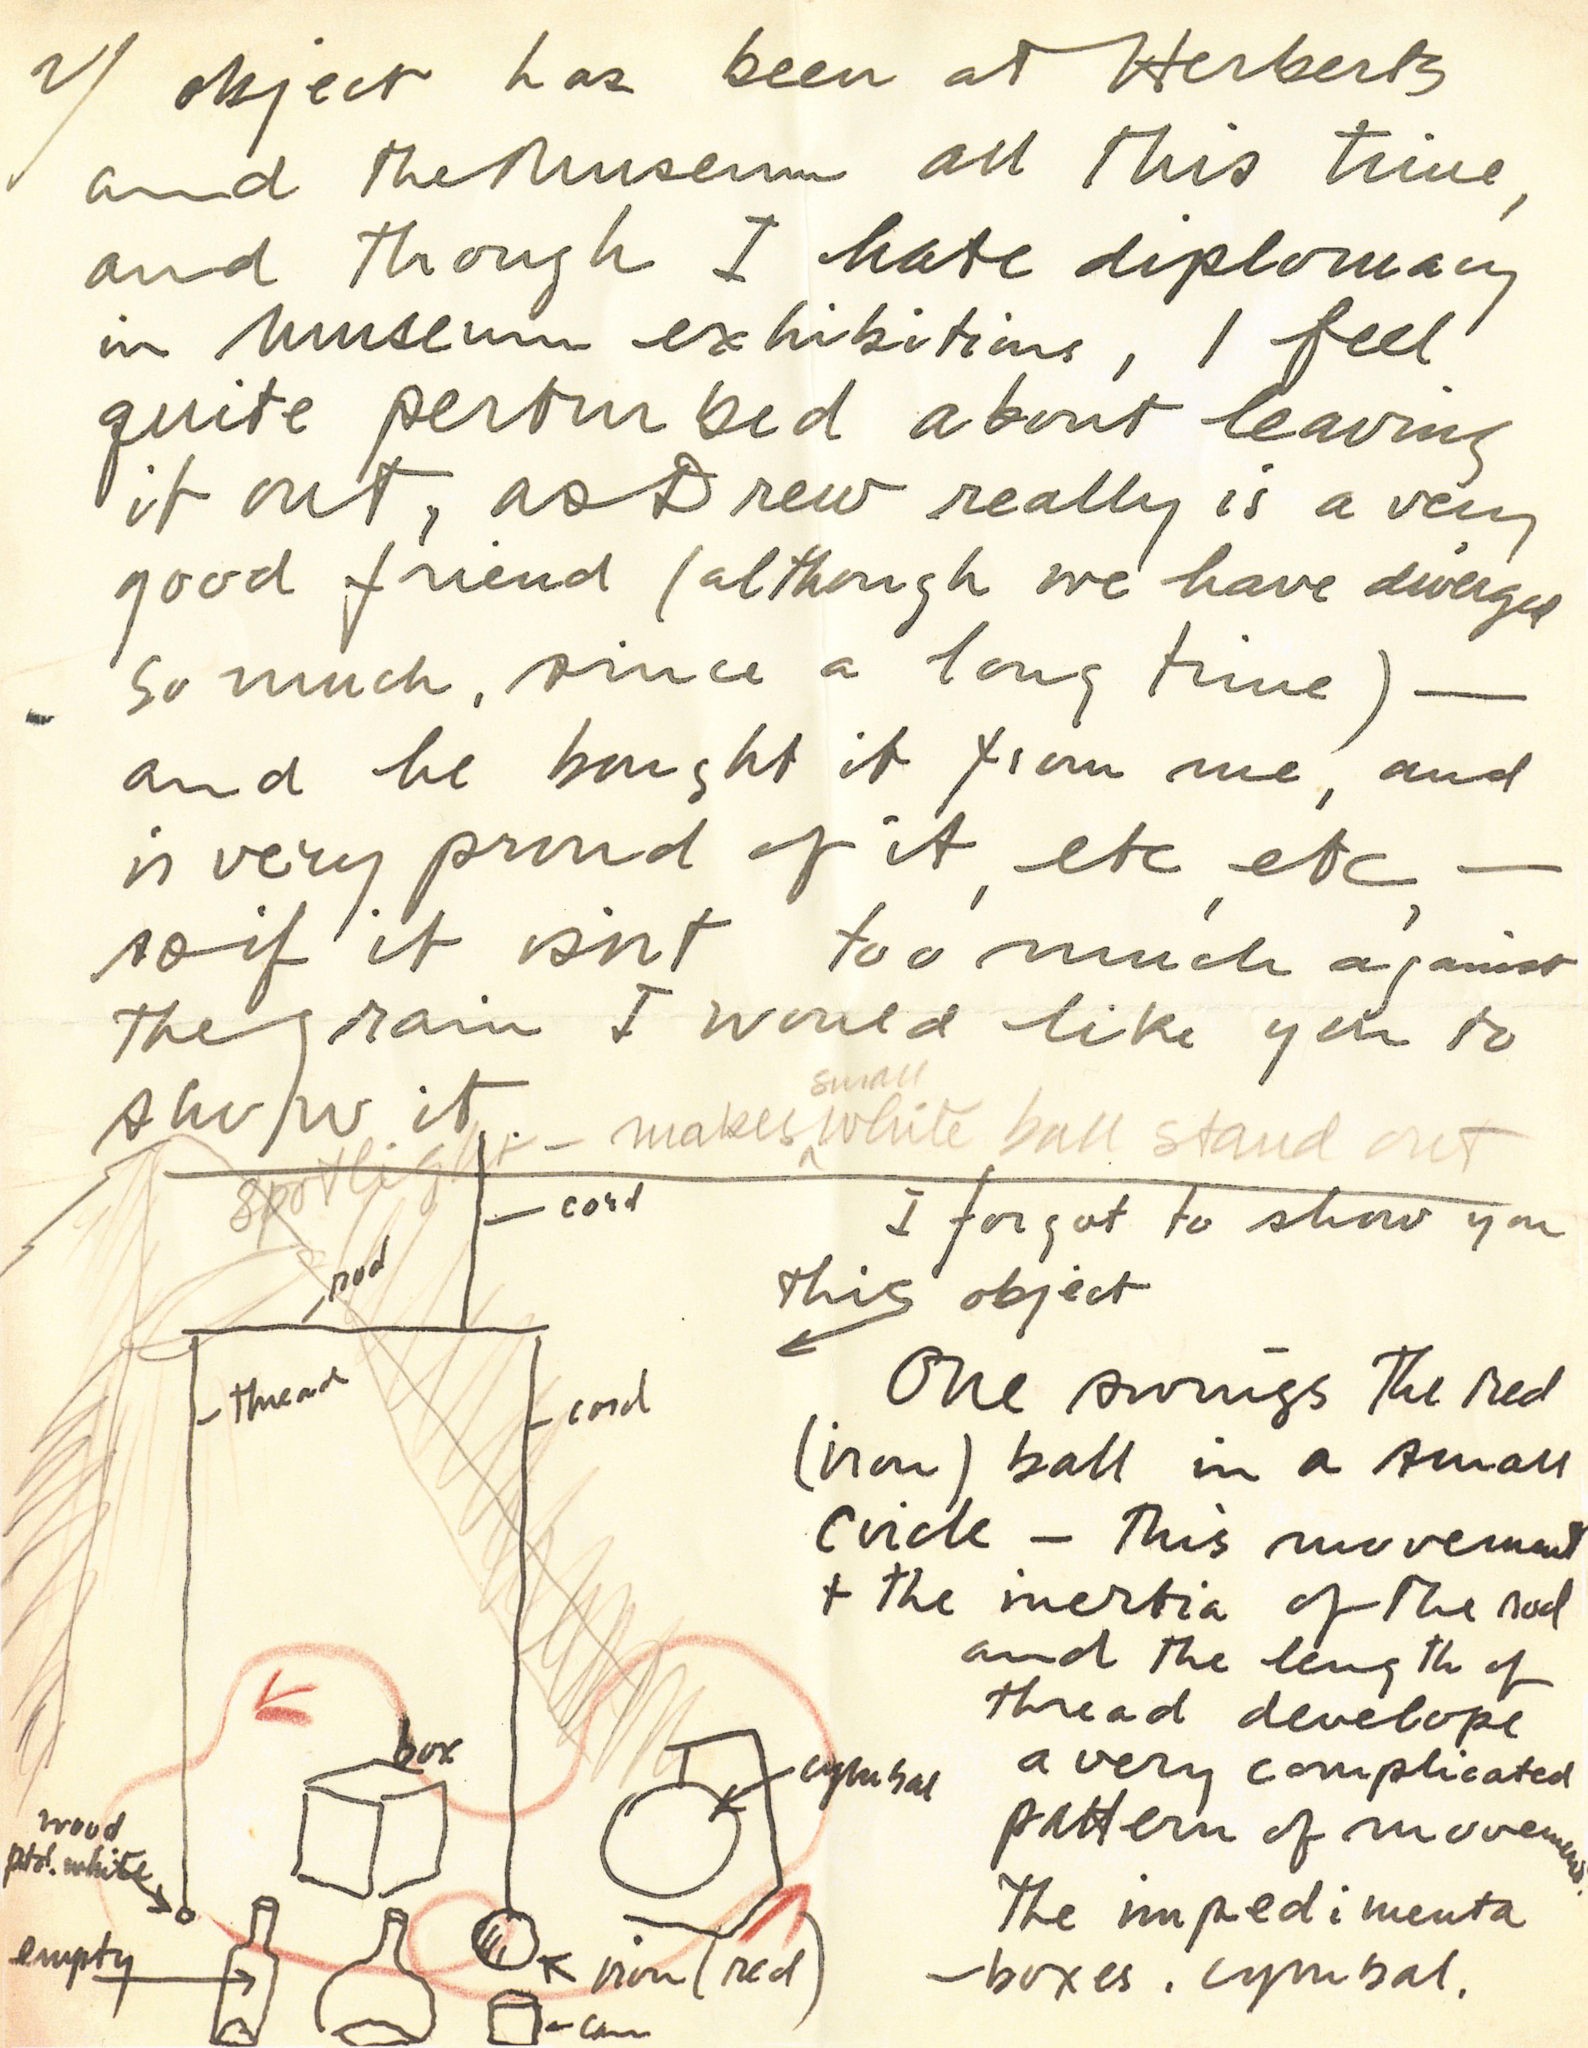 2/ object has been at Herberts
and the Museum all this time,
and though I hate diplomacy
in Museum exhibitions, I feel
quite perturbed about leaving
it out, as Drew really is a very
good friend (although we have diverged
so much, since a long time) —
and he bought it from me, and
is very proud of it, etc, etc, —
so if it isnt too much against
the grain I would like you to
show it.
spotlight — makes small white ball stand out
cord
rod
thread
cord
I forgot to show you
this object
One swings the red
(iron) ball in a small
circle — this movement
+ the inertia of the rod
and the length of
thread develope
a very complicated
pattern of movement.
The impedimenta
— boxes. cymbal.
box
cymbal
wood
ptd. white
empty
iron (red)
can